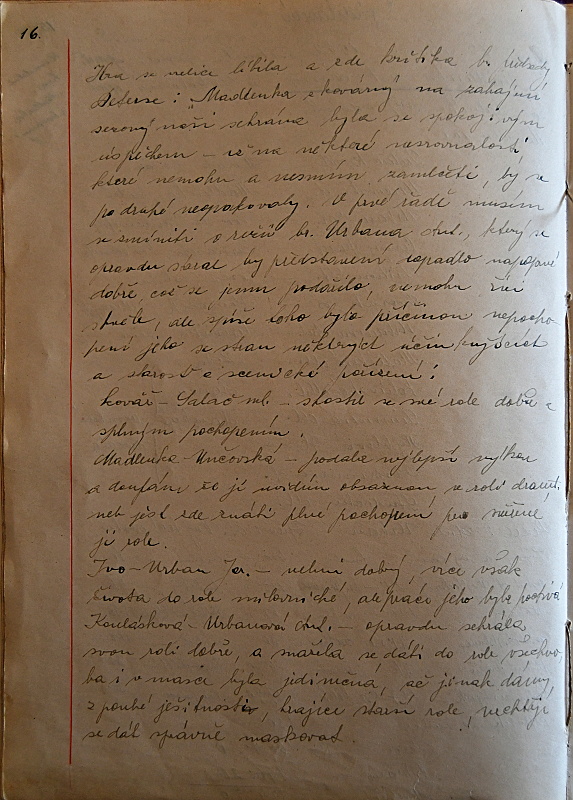 16.
Hra se velice líbila a zde kritika br.
Peterse: "Madlenka z kovárny" na zahájení
sezony naší sehrána byla se spokojivým
úspěchem – až na některé nesrovnalosti
které nemohu a nesmím zamlčeti, by se
po druhé neopakovaly. V prvé řadě musím
se zmíniti o režii br. Urbana Ant., který se
opravdu staral by představení dopadlo
dobře, což se jemu podařilo, nemohu říci
skvěle, ale spíše toho bylo příčinou nepocho
pení jeho se stran některých účinkujících
a starost o scenické zařízení:
Kovář – Salač ml. – zhostil se své role dobře s
úplným pochopením.
Madlenka – Unčovská – podala nejlepší výkon
a doufám že ji uvidím obsazenou v roli dramat.
neb jest zde znáti plné pochopení pro svěřené
jí role.
Ivo – Urban Jar. – velmi dobrý, více však
života do role milovnické, ale práce jeho byla poctivá
Koulásková – Urbanová Ant. – opravdu sehrála
svou roli dobře, a snažila se dáti do role všechno
ba i v masce byla jedinečná, ač jinak dámy,
z pouhé ješitnosti, hrajíce starší role, nechtějí
se dát správně maskovat.